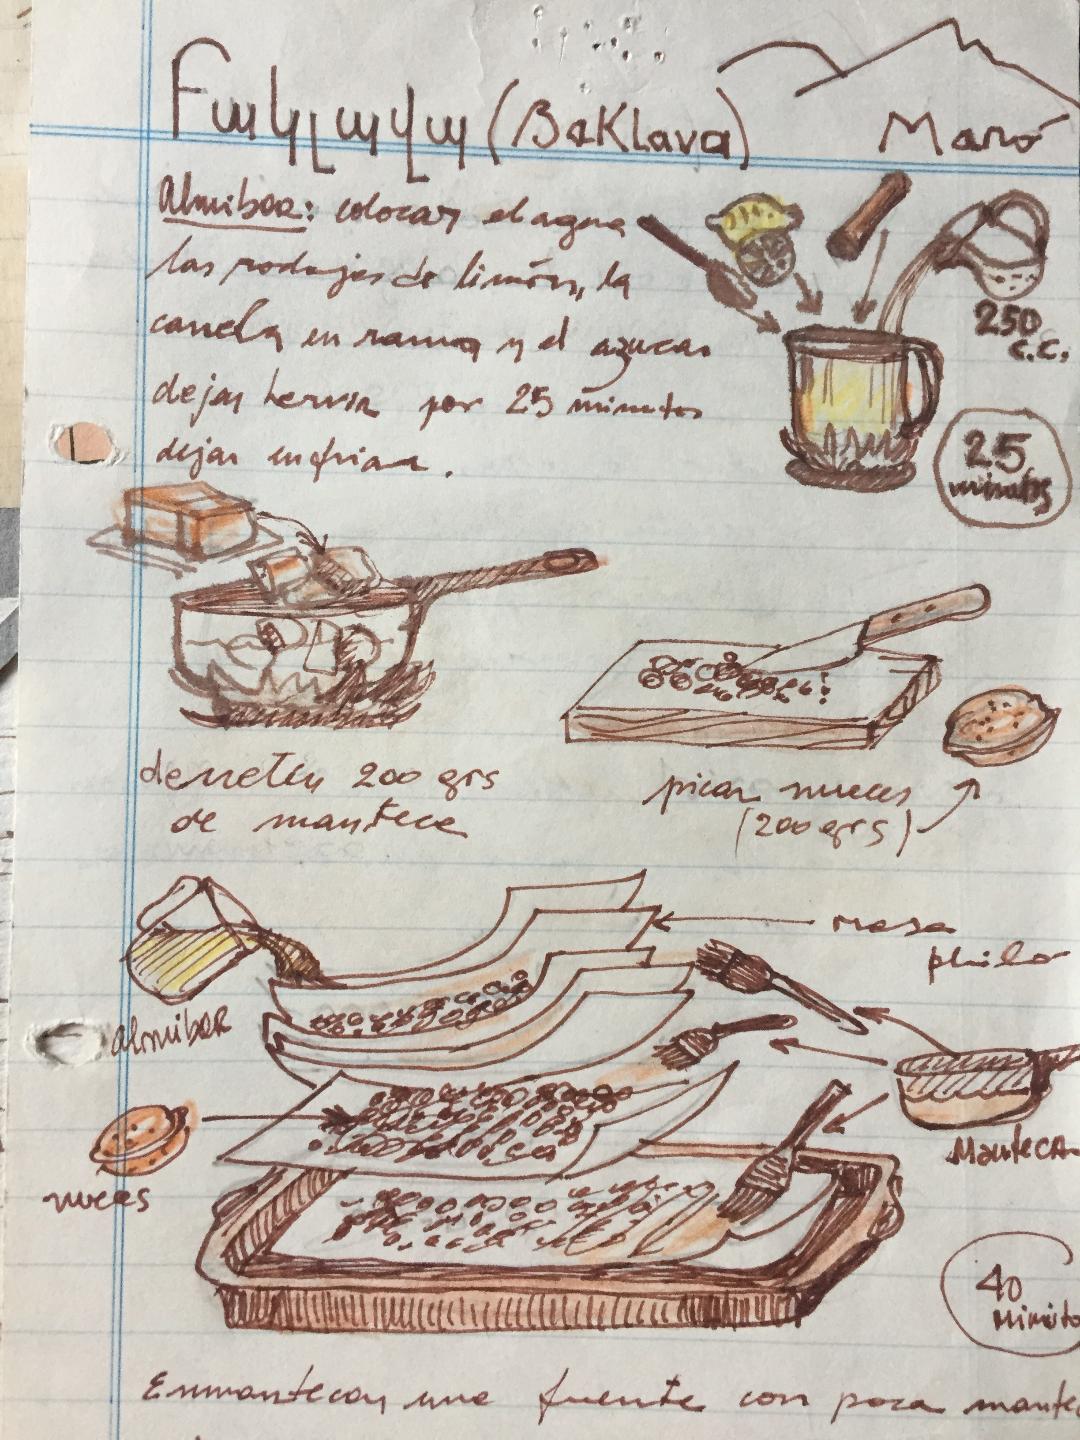 Փախլավա (Baklava)
Maró
Almibar: colocar el agua
las rodajas de limón, la
canela en rama y el azucar
dejar hervir por 25 minutos
dejar enfriar.
250
c.c.
25
minutos
derretir 200 grs
de manteca
picar nueces
(200 grs)
masa
philo
almibar
Manteca
nueces
40
Minuto
Enmantecar una fuente con poca mantec